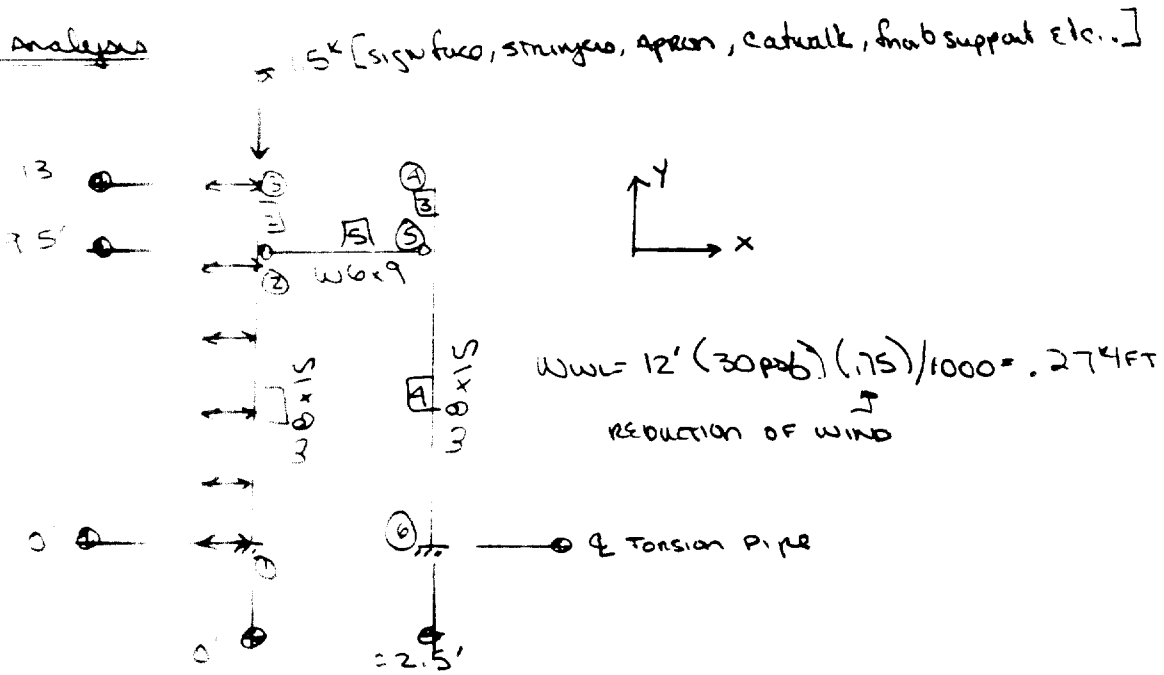 Analysis
5K [sign face, stringers, Apron, catwalk, fnab support etc..]
13
4
3
Y
5
5
5'
2
W6x9
X
W8x15
4
W8x15
WWL= 12' (30psf) (.75)/1000= .27K/FT
REDUCTION OF WIND
0
1
6
℄ Torsion Pipe
0'
=2.5'